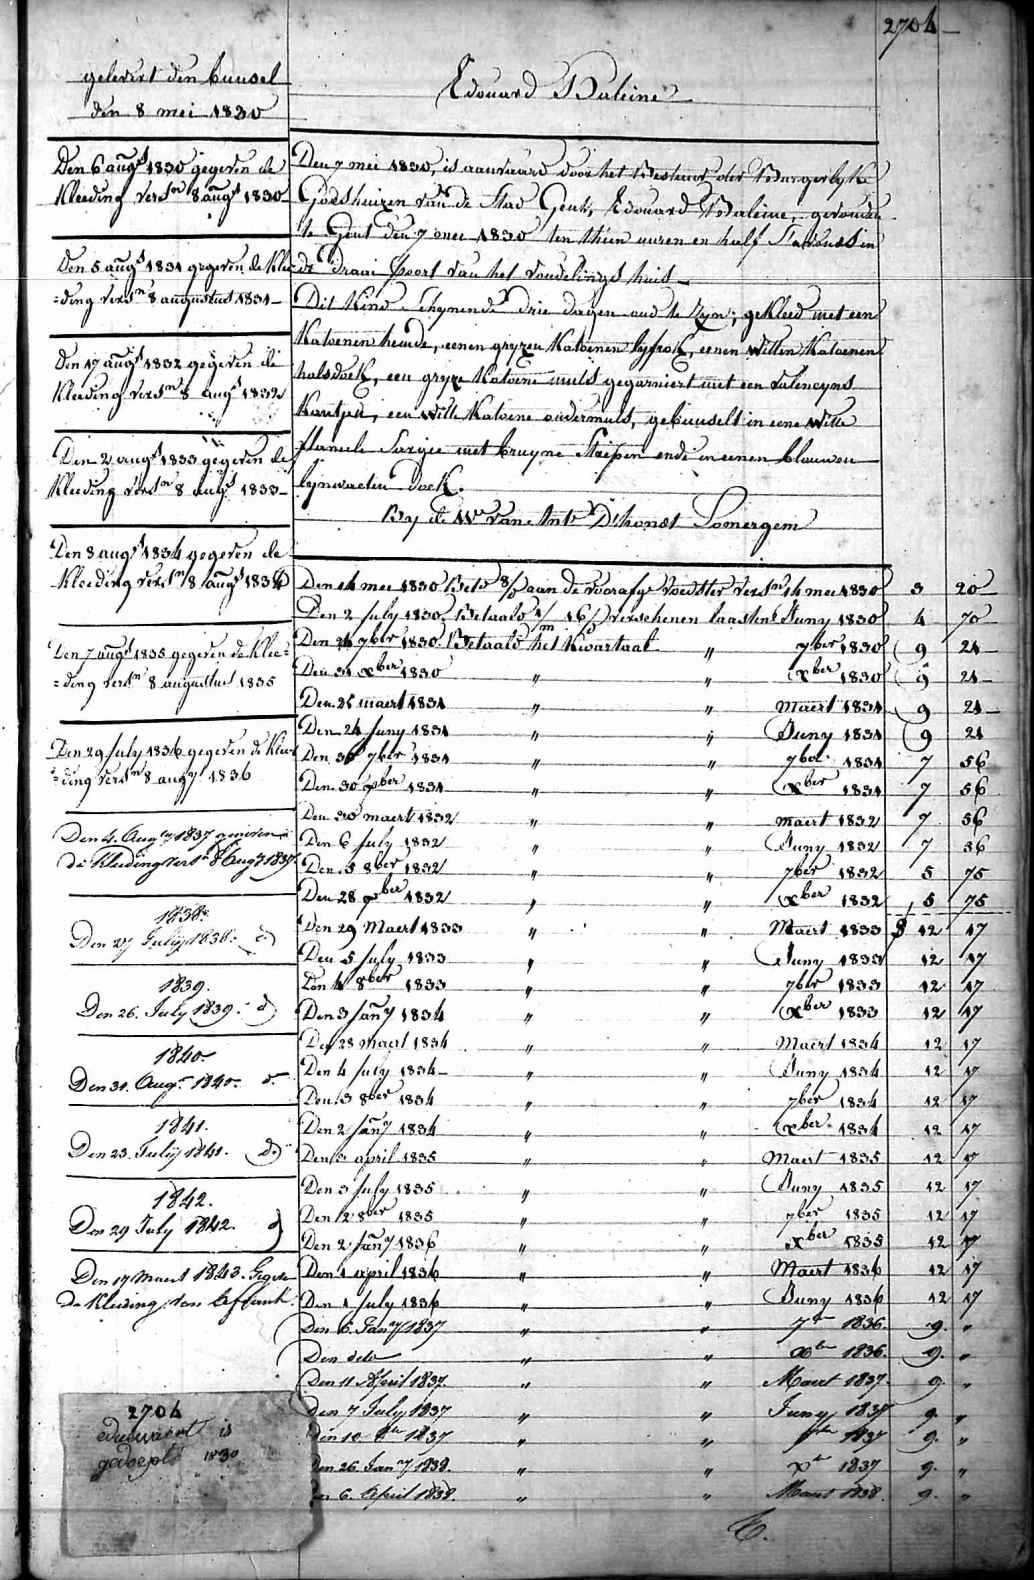 2704
gelevert den bunsel
den 8 mei 1830
Edouard Baleine
Den 6 augs 1830 gegeven de
Kleeding versn 8 augs 1830
Den 5 augs 1831 gegeven de Klee
=ding versn 8 augustus 1831
Den 17 augs 1832 gegeven de
Kleeding versn 8 augs 1832
Den 2 augs 1833 gegeven de
Kleeding versn 8 augs 1833
Den 8 augs 1834 gegeven de
Kleeding versn 8 augs 1834
Den 7 augs 1835 gegeven de Klee=
=ding versn 8 augustus 1835
Den 29 July 1836 gegeven de Klee=
=ding versn 8 augs 1836
Den 4. Augs 1837 gegeven
de Kleeding versn 8 Augs 1837
1838.
Den 27 July 1838. d
1839.
Den 26. July 1839. d
1840
Den 31. Augs 1840. d.
1841.
Den 23. July 1841. d
1842.
Den 29 July 1842. d
Den 17 Maert 1843. Gegeven
de Kleeding
2704
Eduwaert is
gedoept 1830
Den 7 mei 1830, is aanveerd door het Bestuur der Burgerlyke
Godshuizen van de Stad Gent, Edouard Baleine, gevonden
te Gent den 7 mei 1830 ten thien uuren en half S'avonds in
de draai poort van het vondelings huis
Dit Kind schynende drie dagen oud te zyn; gekleed met een
Katoenen hemde, eenen gryzen Katoenen lyfrok, eenen witten Katoenen
halsdoek, een gryze Katoene muts gegarniert met een valencyns
Kantjen, een witte Katoene ondermuts, gebunselt in eene witte
flanele Sargie met bruyne Streepen ende in eenen blauwen
lynwaeten doek.
By de We van Ante D'hondt Somergem
Den 14 mei 1830 Betd aan de voorafge voedster versn 14 mei 1830 3 20
Den 2 July 1830 Betaald verschenen laasten Juny 1830 4 70
Den 24 7ber 1830. Betaald het Kwartaal " 7ber 1830 9 21
Den 31 xber 1830 " " xber 1830 9 21
Den 25 maert 1831 " " Maert 1831 9 21
Den 24 Juny 1831 " " Juny 1831 9 21
Den 30 7ber 1831 " " 7ber 1831 7 56
Den 30 xber 1831 " " xber 1831 7 56
Den 30 maert 1832 " " maert 1832 7 56
Den 6 July 1832 " " Juny 1832 7 56
Den 5 8ber 1832 " " 7ber 1832 5 75
Den 28 xber 1832 " " xber 1832 5 75
Den 29 Maert 1833 " " Maert 1833 12 17
Den 5 July 1833 " " Juny 1833 12 17
Den 4 8ber 1833 " " 7ber 1833 12 17
Den 3 Jany 1834 " " xber 1833 12 17
Den 28 maert 1834 " " Maert 1834 12 17
Den 4 July 1834 " " Juny 1834 12 17
Den 3 8ber 1834 " " 7ber 1834 12 17
Den 2 Jany 1834 " " xber 1834 12 17
Den 3 april 1835 " " Maert 1835 12 17
Den 3 July 1835 " " Juny 1835 12 17
Den 2 8ber 1835 " " 7ber 1835 12 17
Den 2 Jany 1836 " " xber 1835 12 17
Den 1 april 1836 " " Maert 1836 12 17
Den 1 July 1836 " " Juny 1836 12 17
Den 6. Jany 1837 " " 7er 1836. 9. "
Den dito " " xber 1836. 9. "
Den 11 April 1837. " " Maert 1837. 9. "
Den 7 July 1837 " " Juny 1837 9. "
Den 10. 1837 " " 1837 9. "
Den 26. Jany 1838. " " xber 1837 9. "
Den 6. April 1838. " " Maert 1838. 9. "